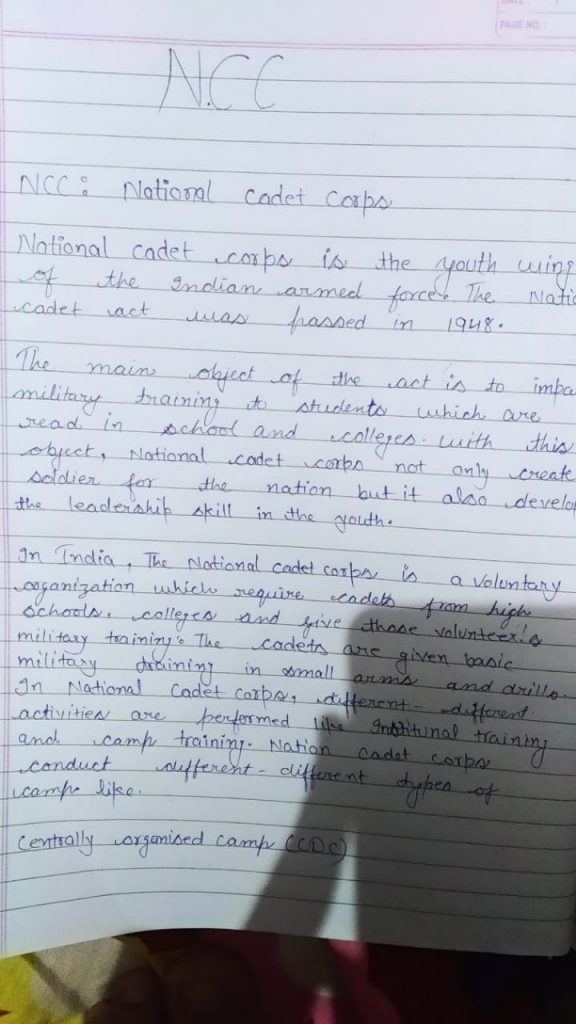 PAGE NO.:
N.C.C
NCC: National cadet corps
National cadet corps is the youth wing
of the Indian armed force. The Natio
cadet act was passed in 1948.
The main object of the act is to impa
military training to students which are
read in school and colleges. with this
object, National cadet corps not only create
soldier for the nation but it also develop
the leadership skill in the youth.
In India, The National cadet corps is a voluntary
organization which require cadets from high
schools, colleges and give those volunteer's
military training. The cadets are given basic
military training in small arms and drills.
In National Cadet Corps, different-different
activities are performed like Institunal training
and camp training. Nation cadet corps
conduct different-different types of
camp like.
Centrally organised camp (CDC)